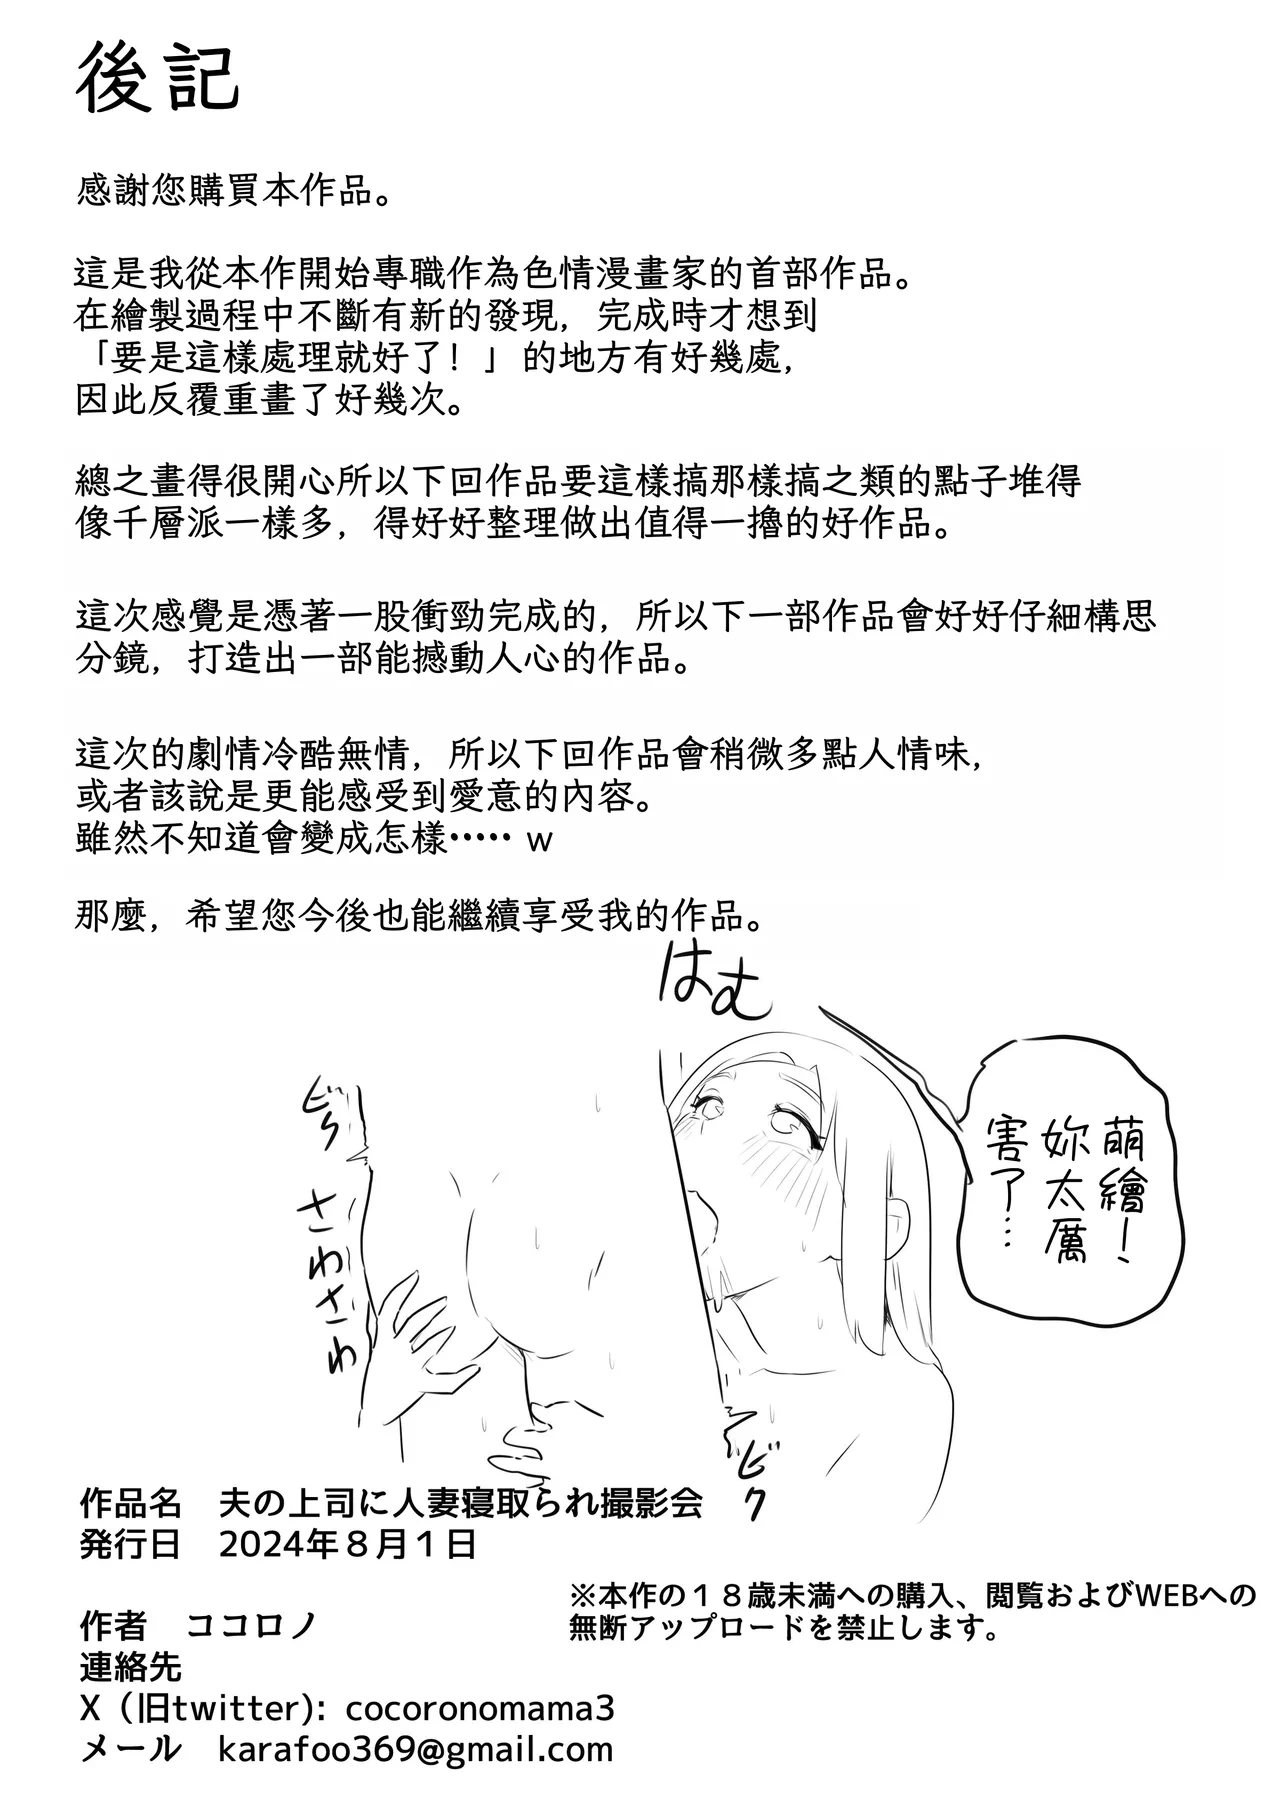 後記
感謝您購買本作品。
這是我從本作開始專職作為色情漫畫家的首部作品。
在繪製過程中不斷有新的發現，完成時才想到
「要是這樣處理就好了！」的地方有好幾處，
因此反覆重畫了好幾次。
總之畫得很開心所以下回作品要這樣搞那樣搞之類的點子堆得
像千層派一樣多，得好好整理做出值得一擼的好作品。
這次感覺是憑著一股衝勁完成的，所以下一部作品會好好仔細構思
分鏡，打造出一部能撼動人心的作品。
這次的劇情冷酷無情，所以下回作品會稍微多點人情味，
或者該說是更能感受到愛意的內容。
雖然不知道會變成怎樣…… w
那麼，希望您今後也能繼續享受我的作品。
はむ
萌繪！
妳太厲
害了…
さわさわ
ビク
作品名　夫の上司に人妻寝取られ撮影会
発行日　2024年８月１日
※本作の１８歳未満への購入、閲覧およびWEBへの
無断アップロードを禁止します。
作者　ココロノ
連絡先
X（旧twitter): cocoronomama3
メール　karafoo369@gmail.com